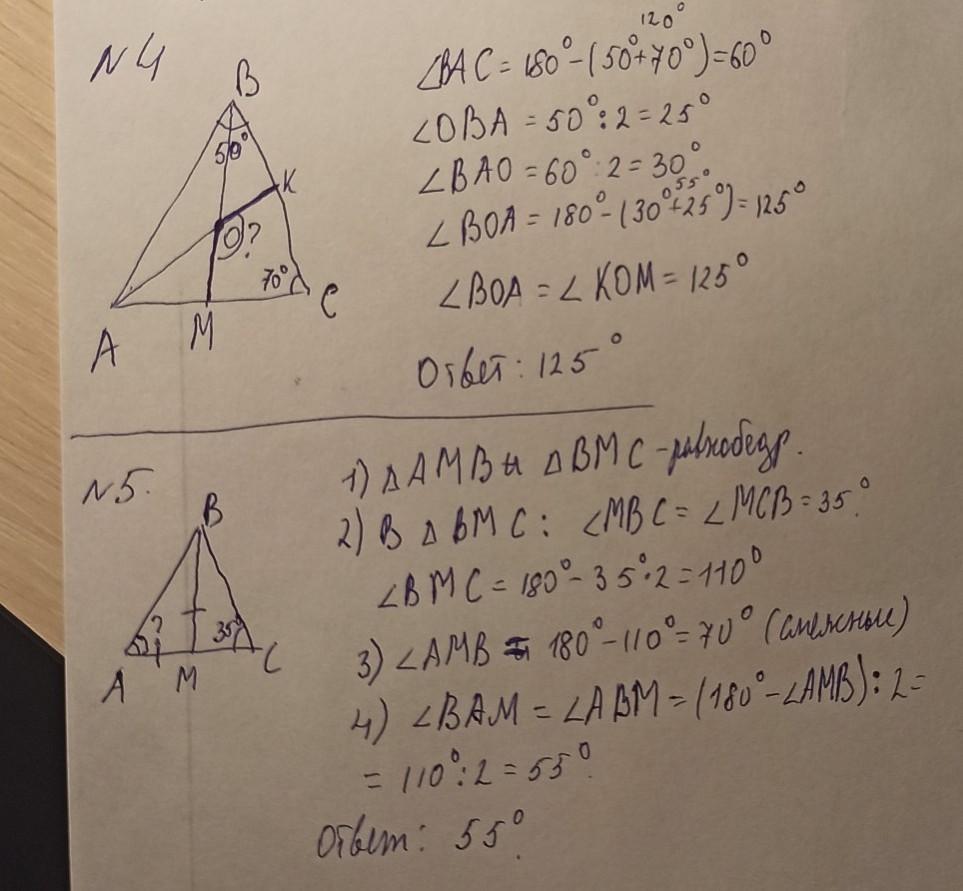 N4
B
50°
K
O ?
70°
A
M
C
120°
∠BAC = 180° - (50° + 70°) = 60°
∠OBA = 50° : 2 = 25°
∠BAO = 60° : 2 = 30°
55°
∠BOA = 180° - (30° + 25°) = 125°
∠BOA = ∠KOM = 125°
Ответ: 125°
N5.
B
?
35°
A
M
C
1) △AMB и △BMC - равнобедр.
2) В △BMC: ∠MBC = ∠MCB = 35°.
∠BMC = 180° - 35° · 2 = 110°
3) ∠AMB = 180° - 110° = 70° (смежные)
4) ∠BAM = ∠ABM = (180° - ∠AMB) : 2 =
= 110° : 2 = 55°.
Ответ: 55°.